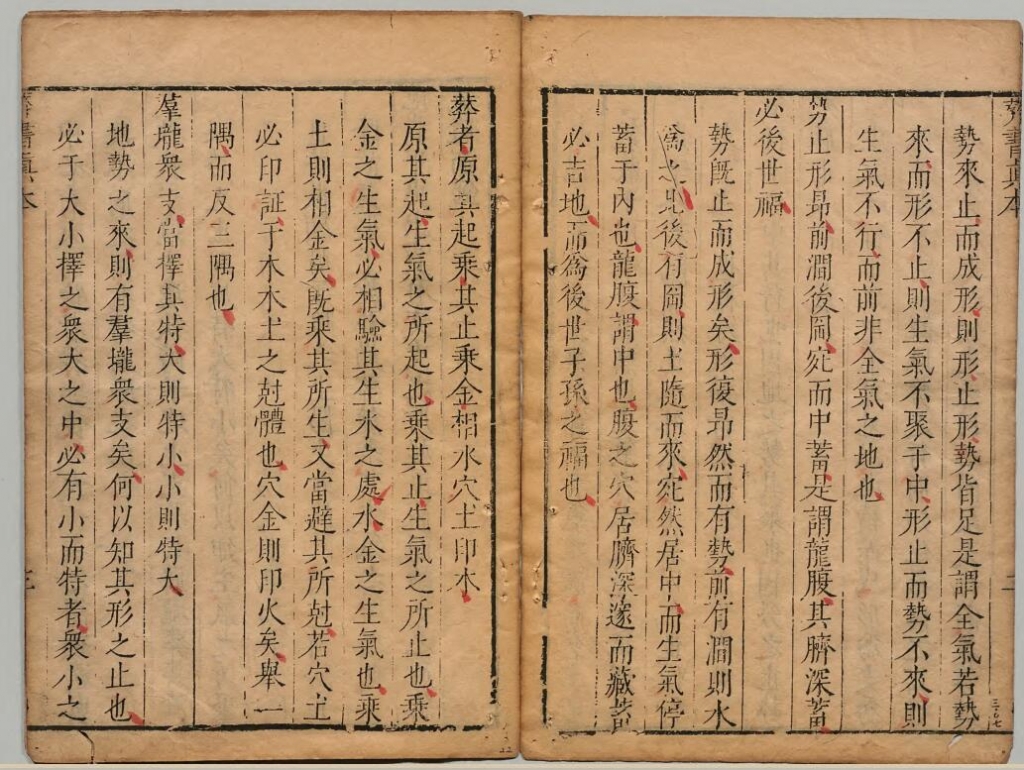 葬書真本
勢來止而成形則形止形勢皆足是謂全氣若勢
來而形不止則生氣不聚于中形止而勢不來則
生氣不行而前非全氣之地也
勢止形昻前澗後岡宛而中蓄是謂龍腹其臍深蓄
必後世福
勢旣止而成形矣形復昻然而有勢前有澗則水
爲之兆後有岡則土隨而來宛然居中而生氣停
蓄于內也龍腹謂中也腹之穴居臍深邃而藏蓄
必吉地而爲後世子孫之福也
葬者原其起乘其止乘金相水穴土印木
原其起生氣之所起也乘其止生氣之所止也乘
金之生氣必相驗其生水之處水金之生氣也乘
土則相金矣旣乘其所生又當避其所尅若穴土
必印証于木木土之尅體也穴金則印火矣舉一
隅而反三隅也
羣壠衆支當擇其特大則特小小則特大
地勢之來則有羣壠衆支矣何以知其形之止也
必于大小擇之衆大之中必有小而特者衆小之
葬書真本